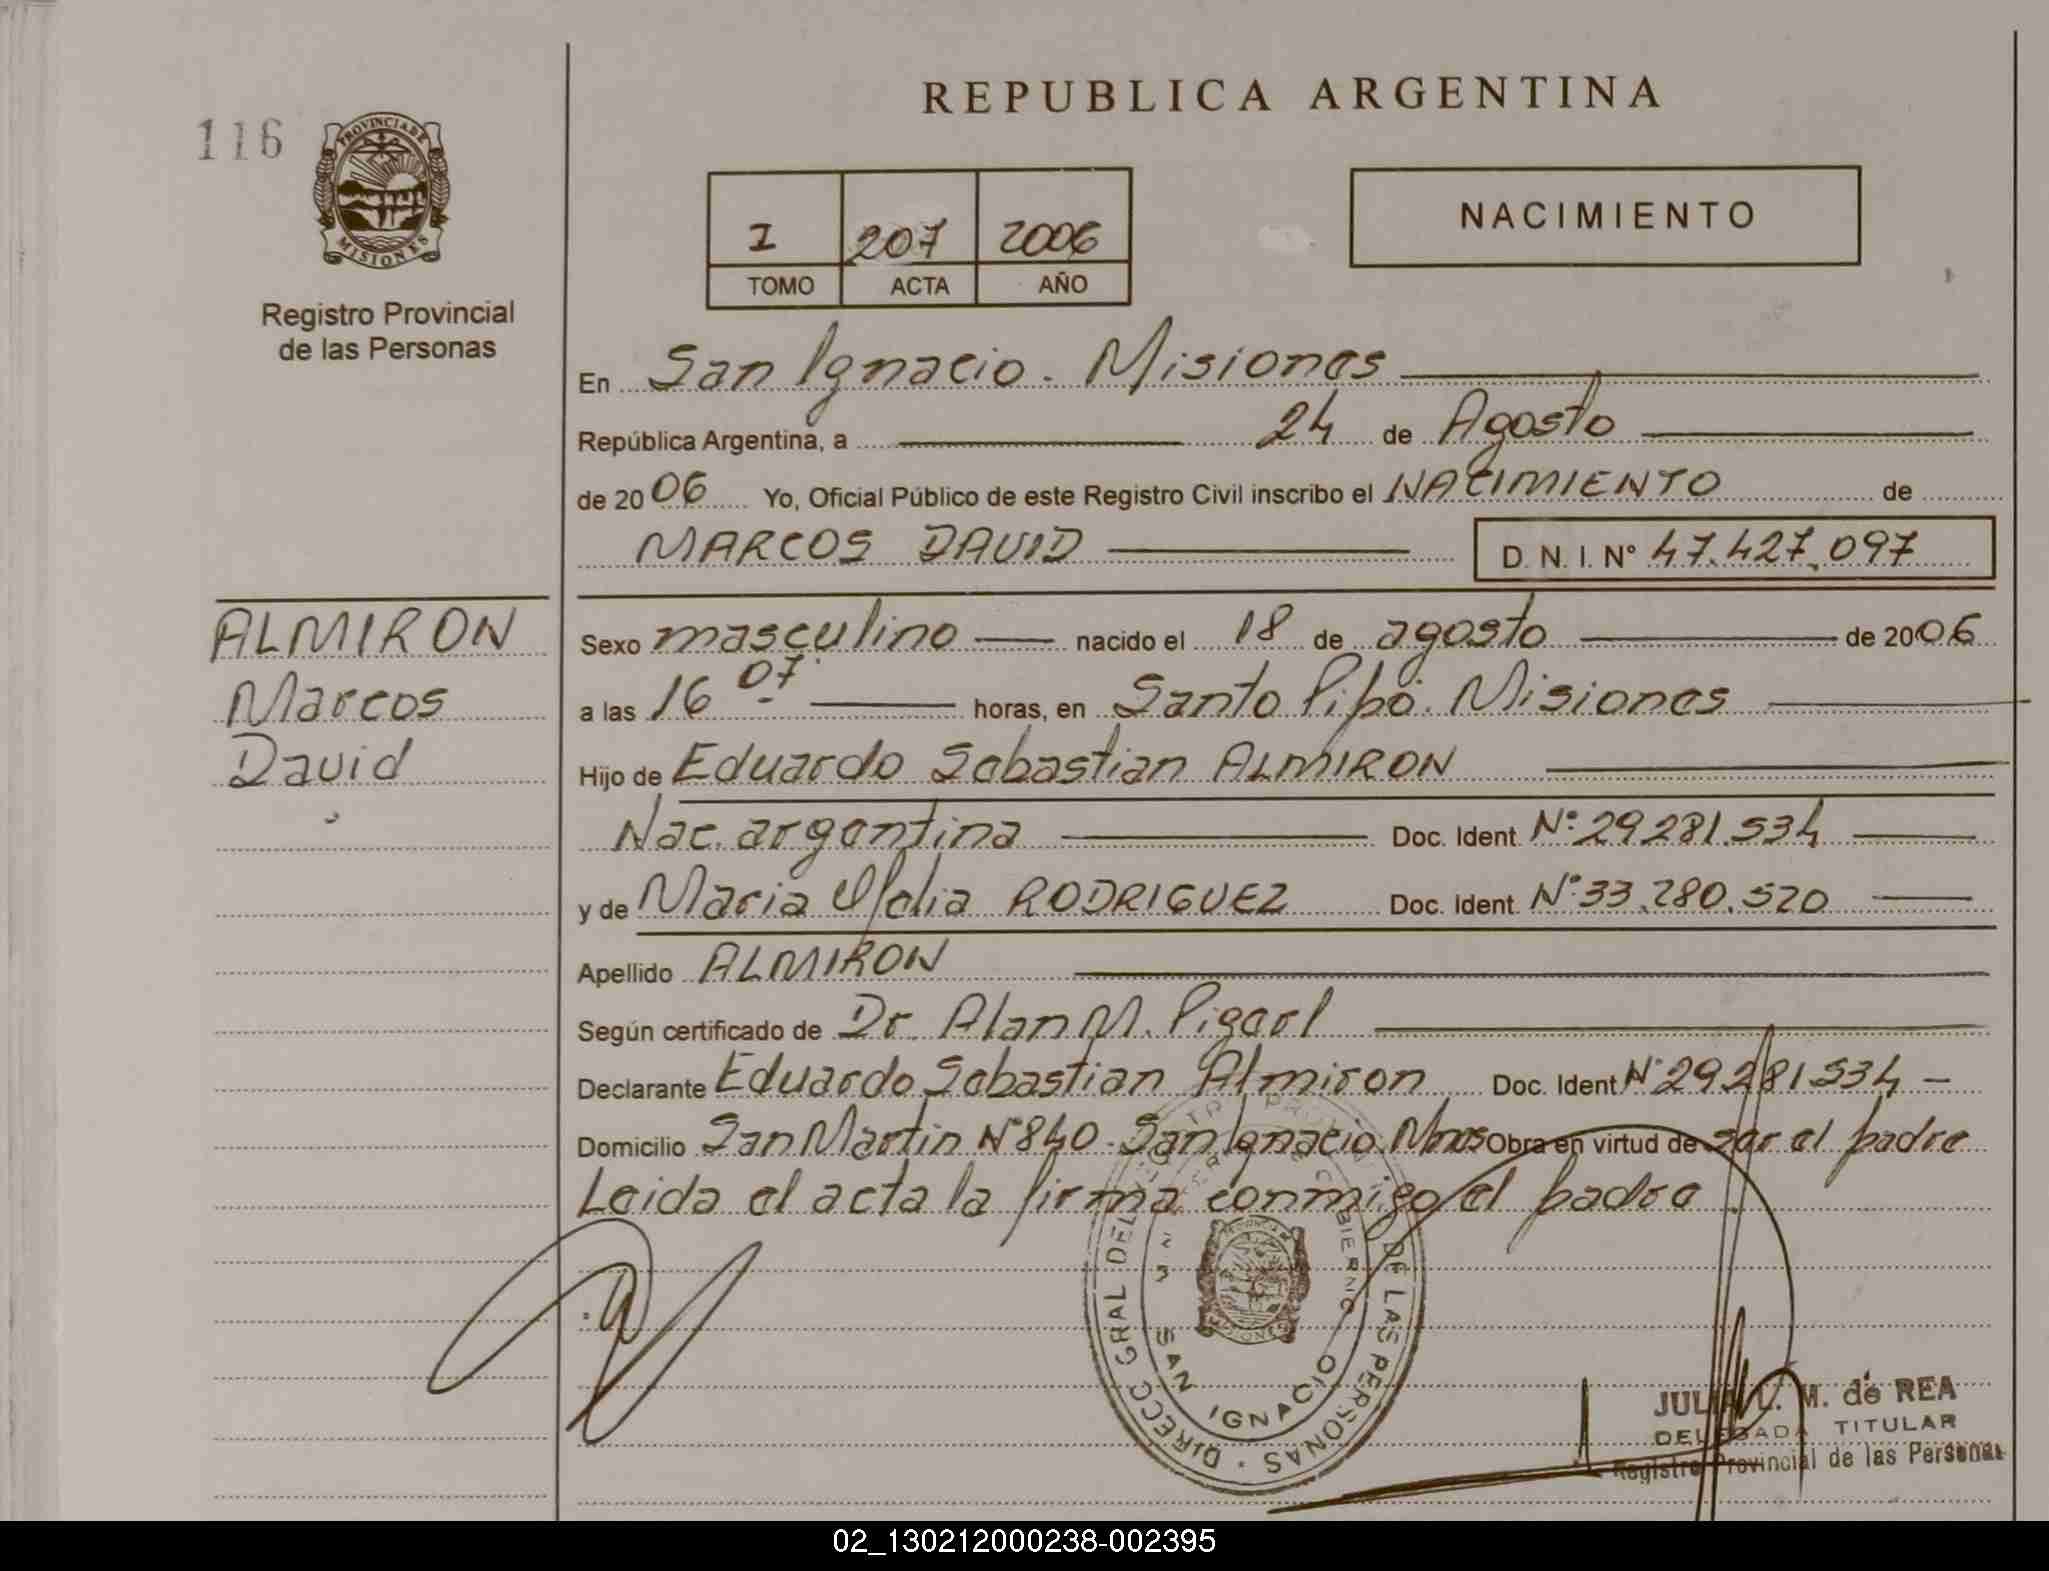 116
PROVINCIA DE
MISIONES
Registro Provincial
de las Personas
REPUBLICA ARGENTINA
I 207 2006
TOMO ACTA AÑO
NACIMIENTO
En San Ignacio. Misiones
República Argentina, a 24 de Agosto
de 2006 Yo, Oficial Público de este Registro Civil inscribo el NACIMIENTO de
MARCOS DAVID D. N. I. N° 47.427.097
ALMIRON
Marcos
David
Sexo masculino nacido el 18 de agosto de 2006
a las 16 07 horas, en Santo Pipó. Misiones
Hijo de Eduardo Sebastian ALMIRON
Nac. argentina Doc. Ident. N° 29.281.534
y de Maria RODRIGUEZ Doc. Ident. N° 33.280.520
Apellido ALMIRON
Según certificado de Dr. Alan M.
Declarante Eduardo Sebastian Almiron Doc. Ident N° 29.281.534
Domicilio San Martin N° 840. San Ignacio. Mnes Obra en virtud de ser el padre
Leida el acta la firma conmigo el padre
DIRECC GRAL DEL DE LAS PERSONAS
SAN IGNACIO
JULIA L. M. de REA
DELEGADA TITULAR
Registro Provincial de las Personas
02_130212000238-002395